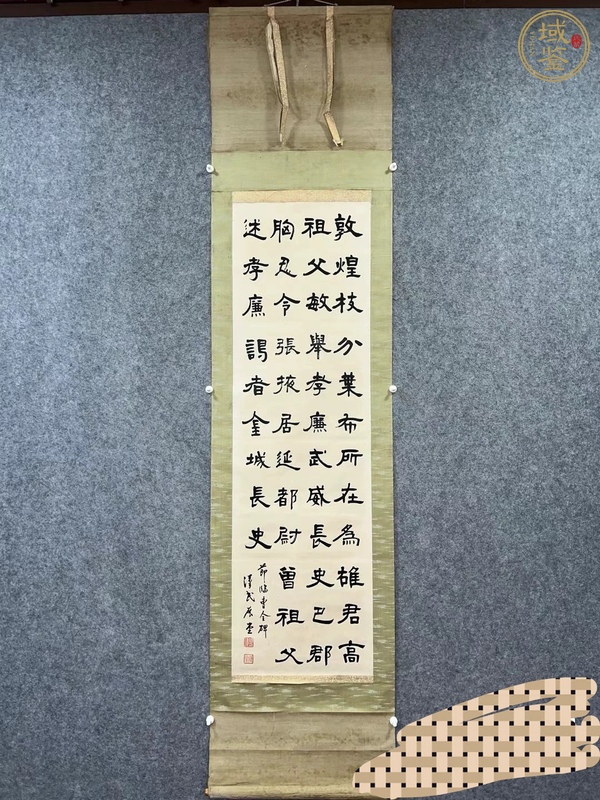 敦煌枝分葉布所在為雄君高
祖父敏舉孝廉武威長史巴郡
朐忍令張掖居延都尉曾祖父
述孝廉謁者金城長史
節臨曹全碑
域鉴